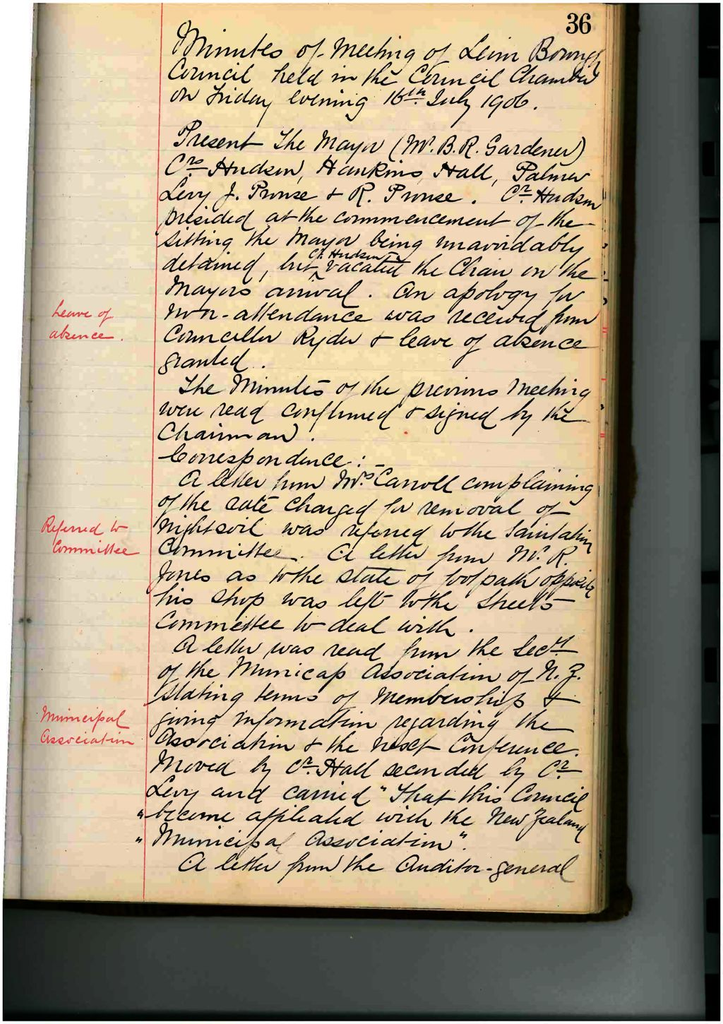 36
Minutes of Meeting of Levin Borough
Council held in the Council Chamber
on Friday evening 16th July 1906.
Present The Mayor (Mr. B. R. Gardener)
Crs Hudson, Hankins Hall, Palmer
Levy J. Prouse & R. Prouse. Cr Hudson
presided at the commencement of the
sitting the Mayor being unavoidably
detained, but Cr Hudson vacated the Chair on the
Mayors arrival. An apology for
non-attendance was received from
Leave of
absence.
Councillor Ryder & leave of absence
granted.
The Minutes of the previous Meeting
were read confirmed & signed by the
Chairman.
Correspondence:-
A letter from Mrs Carroll complaining
of the rate charged for removal of
Referred to
Committee
Nightsoil was referred to the Sanitation
Committee. A letter from Mr. R.
Jones as to the state of footpath opposite
his shop was left to the Streets
Committee to deal with.
A letter was read from the Secty
of the Municap Association of N. Z.
stating terms of Membership &
Municipal
Association
giving information regarding the
Association & the next Conference.
Moved by Cr Hall seconded by Cr
Levy and carried "That this Council
"become affiliated with the New Zealand
"Municipal Association".
A letter from the Auditor-general